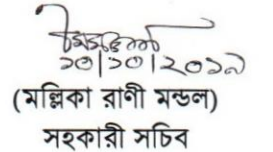 ১০|১০|২০১৯
(মল্লিকা রাণী মন্ডল)
সহকারী সচিব